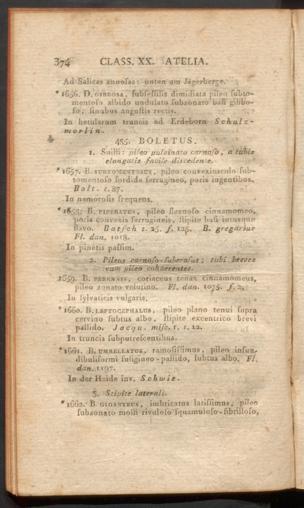 374 CLASS. XX. ATELIA.
Ad Salices annosas: unten am Jägerberge.
*1656. D. gibbosa, subsessilis dimidiata pileo subto-
mentoso albido undulato subzonato basi gibbo-
so, sinubus angustis rectis.
In betularum truncis ad Erdeborn Schulz-
485. BOLETUS.
1. Suilli: pileo pulvinato carnoso, a tubis
elongatis facile discedens.
*1657. B. pileo convexiusculo sub-
tomentoso sordide ferrugineo, poris ingentibus.
Bolt. t. 87.
In nemorosis frequens.
B. piperatus, pileo flavo cinnamomeo,
poris convexis ferrugineis, stipite basi intusque
flavo. Batsch t. 25. f. 128. B. gregarius
Fl. dan. 1018.
In pinetis passim.
2. Pileus carnoso-suberosus; tubi breves
cum pileo cohaerentes.
1659. B. perennis, coriaceus tenax cinnamomeus,
pileo zonato velutino. Fl. dan. 1075. f. 2.
In sylvaticis vulgaris.
*1660. B. leptocephalus, pileo plano tenui supra
cervino subtus albo, stipite excentrico brevi
pallido. Jacqu. misc. 1. t. 12.
In truncis subputrescentibus.
*1661. B. umbellatus, ramosissimus, pileo infun-
dibuliformi fuligineo-pallido, subtus albo. Fl.
dan. 1197.
In der Haide inv. Schwie.
3. Stipite laterali.
*1662. B. giganteus, imbricatus latissimus, pileo
subzonato molli rivuloso squamuloso-fibrilloso,